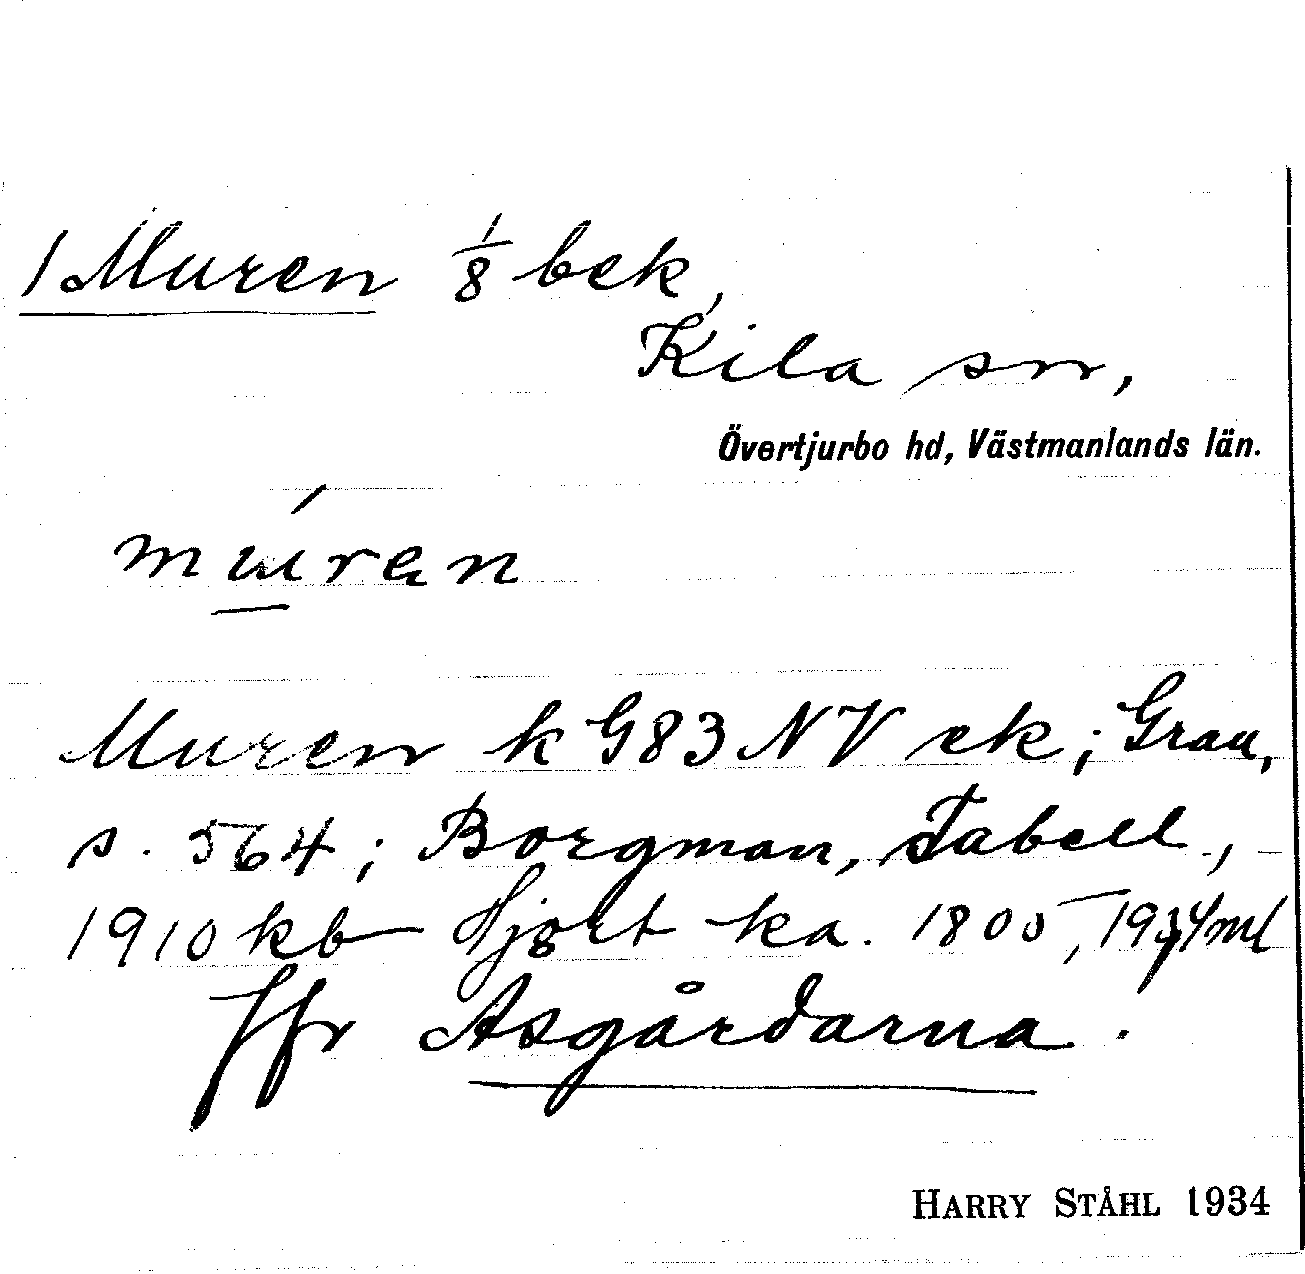 / Muren 1/8 bek,
Kila sn,
Övertjurbo hd, Västmanlands län.
Muren k G83 NV ek; Grau,
s. 564; Borgman, Tabell,
1910 kb Hjort ka. 1805, 1934 ml
ffr Asgårdarna.
HARRY STÅHL 1934